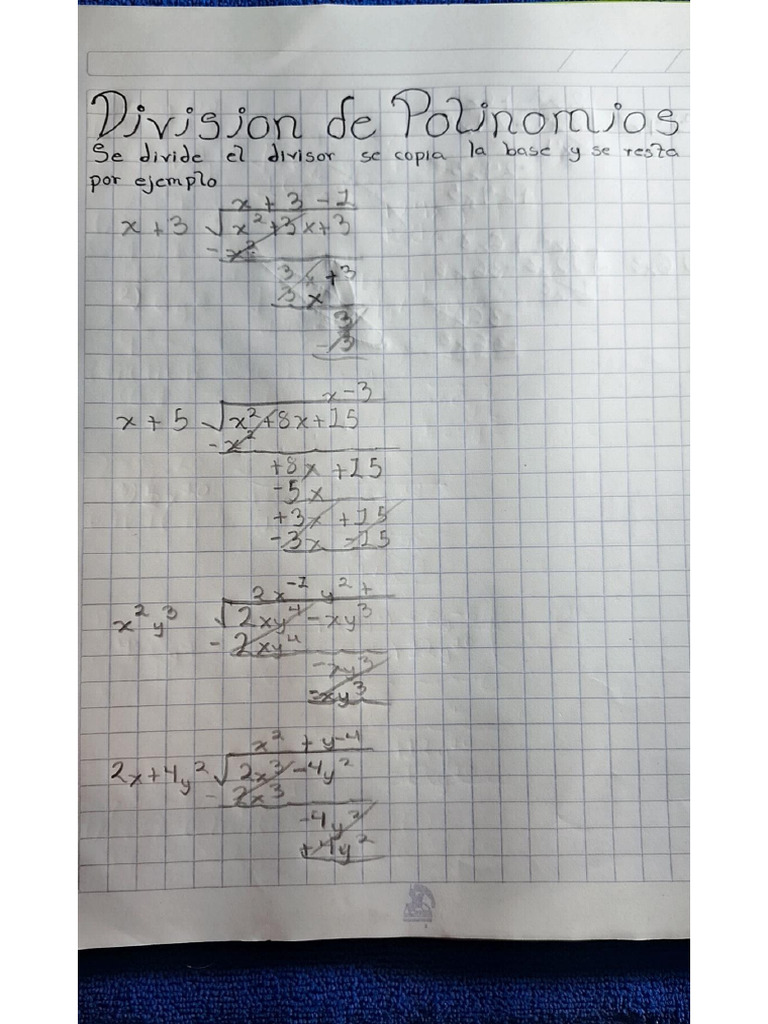 Division de Polinomios
Se divide el divisor se copia la base y se resta
por ejemplo
x + 3 - 1
x + 3 √x² + 3x + 3
- x²
3x + 3
3x
3
- 3
x - 3
x + 5 √x² + 8x + 15
- x²
+8x + 15
-5x
+3x + 15
-3x - 15
2x⁻¹ y² +
x² y³ √2xy⁴ - xy³
- 2xy⁴
- xy³
- xy³
x² + y⁻⁴
2x + 4y² √2x³ - 4y²
- 2x³
-4y²
+4y²